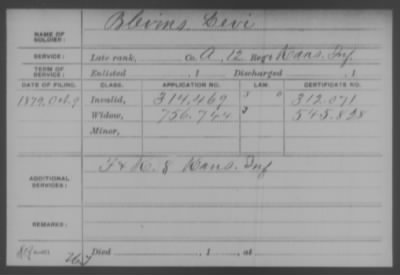 Blevins Levi
NAME OF SOLDIER:
SERVICE: Late rank, Co. A, 12 Reg't Kans. Inf.
TERM OF SERVICE: Enlisted , 1 Discharged , 1
DATE OF FILING. CLASS. APPLICATION NO. LAW. CERTIFICATE NO.
1879, Oct. 9 Invalid, 314,469 312.071
Widow, 756.744 545.828
Minor,
F & K. 8 Kans. Inf
ADDITIONAL SERVICES:
REMARKS:
Died , 1 , at